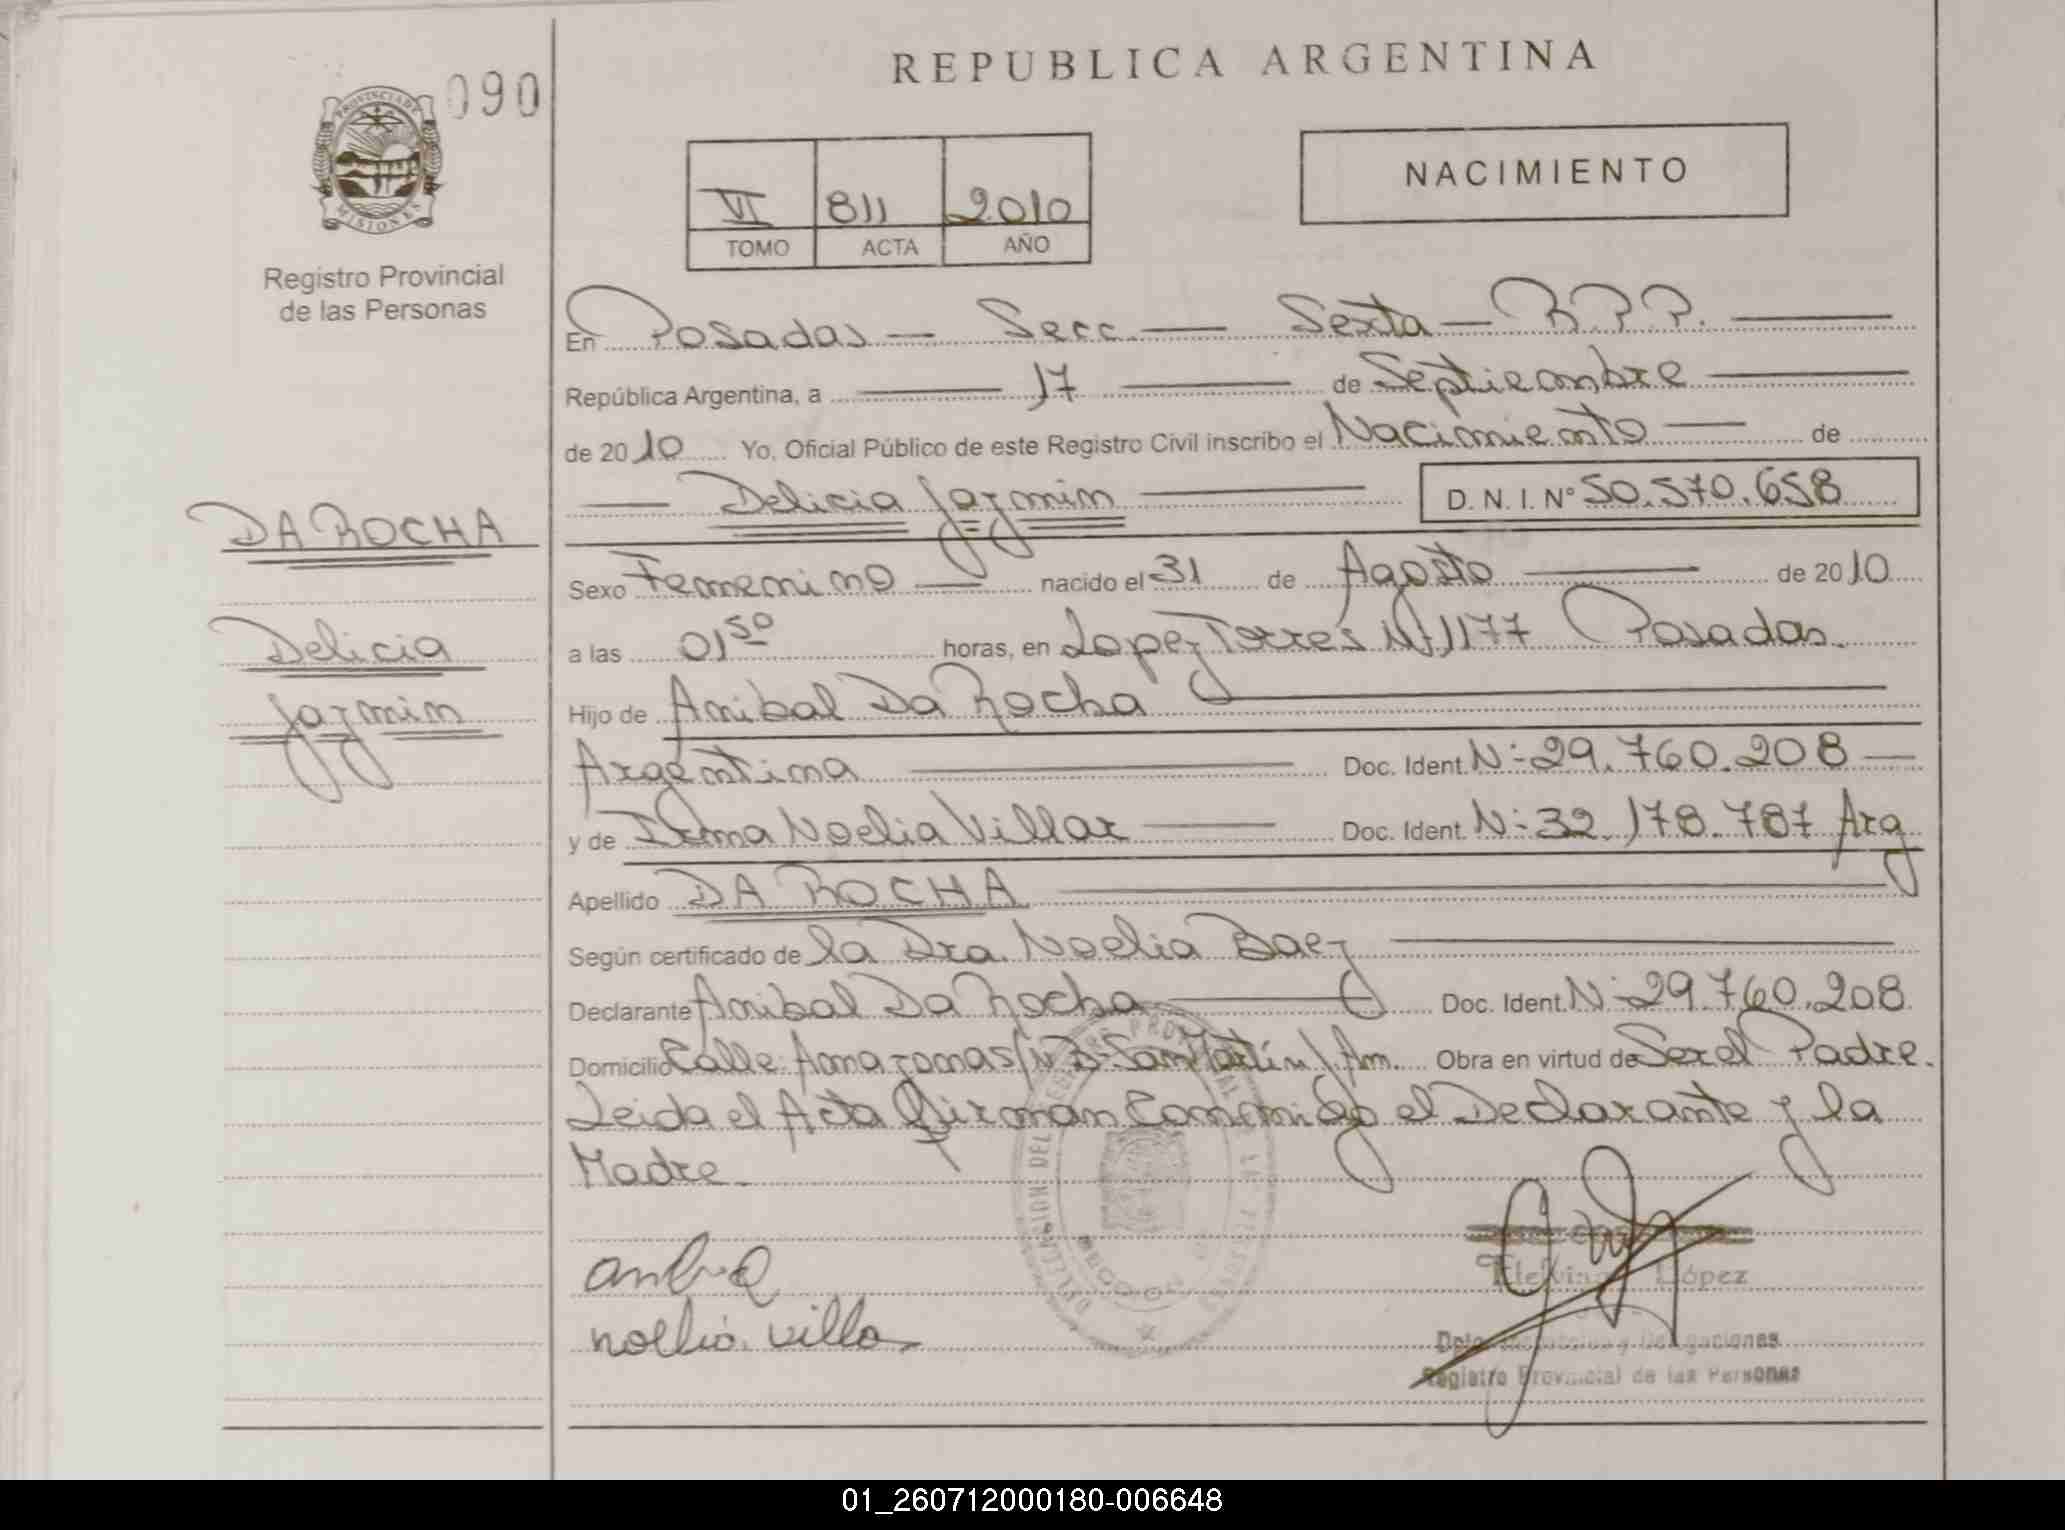 REPUBLICA ARGENTINA
090
PROVINCIA DE MISIONES
Registro Provincial
de las Personas
VI 811 2010
TOMO ACTA AÑO
NACIMIENTO
DA ROCHA
Delicia
Jazmin
En Posadas — Secc. — Sexta — R.P.P. —
República Argentina, a — 17 — de Septiembre —
de 2010 Yo, Oficial Público de este Registro Civil inscribo el Nacimiento — de
— Delicia Jazmin — D. N. I. N° 50.570.658
Sexo Femenino — nacido el 31 de Agosto — de 2010
a las 01 50 horas, en Lopez Torres Nº 1177 Posadas.
Hijo de Anibal Da Rocha —
Argentina — Doc. Ident. Nº 29.760.208 —
y de Irma Noelia Villar — Doc. Ident. Nº 32.178.787 Arg
Apellido DA ROCHA —
Según certificado de la Dra. Noelia Baez —
Declarante Anibal Da Rocha — Doc. Ident. Nº 29.760.208.
Domicilio Calle Amazonas s/nº Bº San Martín / Am. Obra en virtud de Ser el Padre.
Leida el Acta Firman Conmigo el Declarante y la
Madre.
López
Dpto. y Delegaciones
Registro Provincial de las Personas
01_260712000180-006648